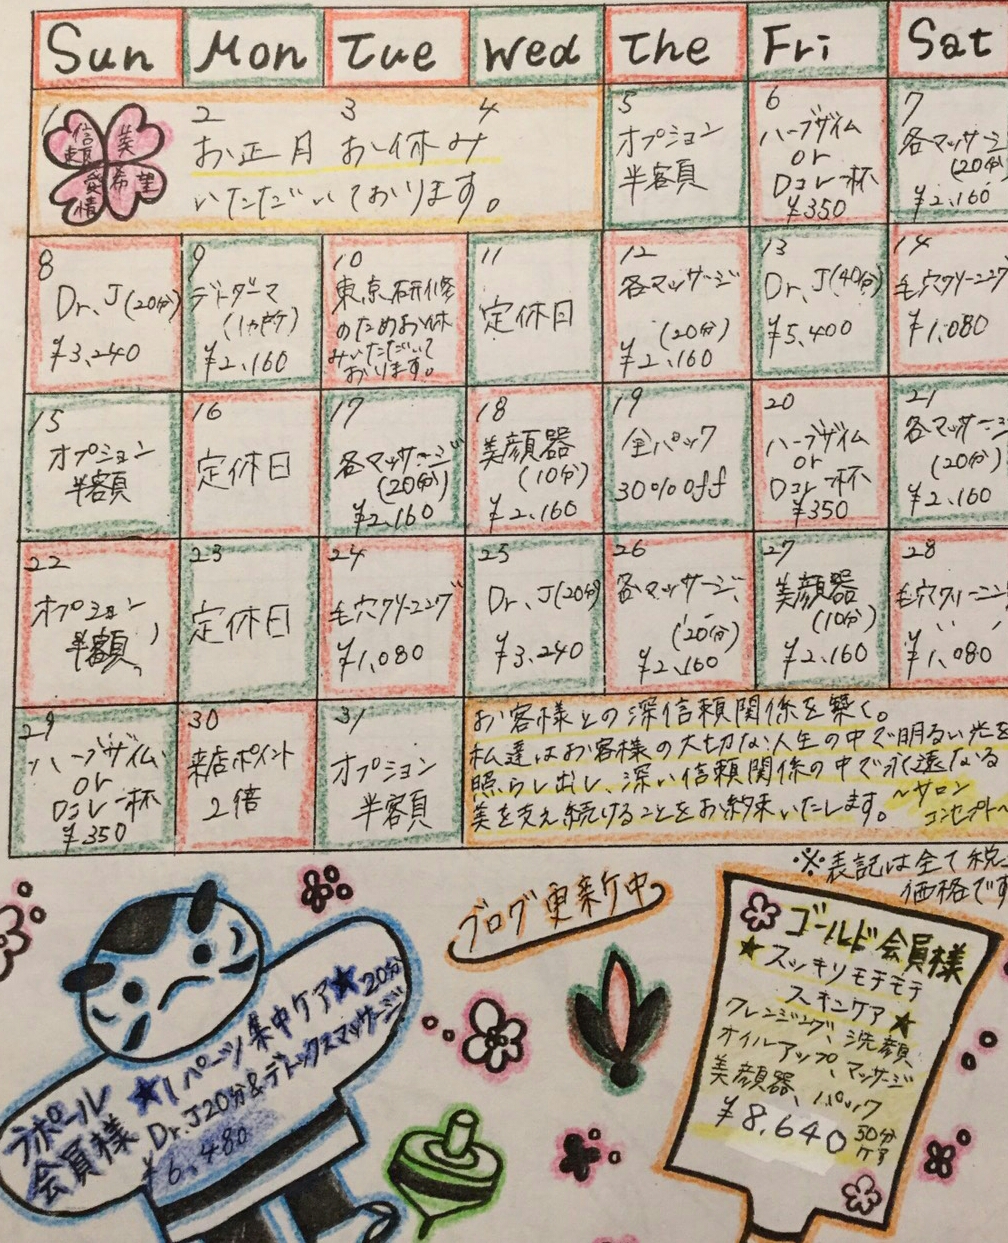 Sun Mon Tue Wed The Fri Sat
1
信頼
美
愛情
希望
2 3 4
お正月 お休み
いただいております。
5
オプション
半額
6
ハーブザイム
or
Dコレ一杯
¥350
7
各マッサージ
(20分)
¥2,160
8
Dr.J(20分)
¥3,240
9
デトダーマ
(1カ所)
¥2,160
10
東京研修
のためお休
みいただいて
おります。
11
定休日
12
各マッサージ
(20分)
¥2,160
13
Dr.J(40分)
¥5,400
14
毛穴クリーニング
¥1,080
15
オプション
半額
16
定休日
17
各マッサージ
(20分)
¥2,160
18
美顔器
(10分)
¥2,160
19
全パック
30%off
20
ハーブザイム
or
Dコレ一杯
¥350
21
各マッサージ
(20分)
¥2,160
22
オプション
半額
23
定休日
24
毛穴クリーニング
¥1,080
25
Dr.J(20分)
¥3,240
26
各マッサージ
(20分)
¥2,160
27
美顔器
(10分)
¥2,160
28
毛穴クリーニング
¥1,080
29
ハーブザイム
or
Dコレ一杯
¥350
30
来店ポイント
2倍
31
オプション
半額
お客様との深信頼関係を築く。
私達はお客様の大切な人生の中で明るい光を
照らし出し、深い信頼関係の中で永遠なる
美を支え続けることをお約束いたします。
～サロン
コンセプト～
※表記は全て税
価格です
ブログ更新中
ラポール
会員様
★1パーツ集中ケア★20分
Dr.J20分&デトックスマッサージ
¥6,480
ゴールド会員様
★スッキリモチモチ
スキンケア★
クレンジング、洗顔、
オイルアップ、マッサージ
美顔器、パック
¥8,640 50分
ケア